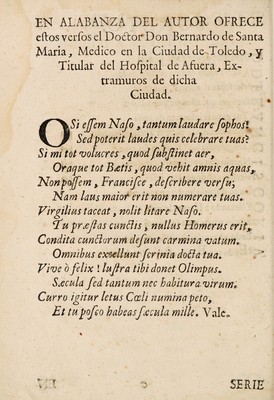 EN ALABANZA DEL AUTOR OFRECE
estos versos el Doctor Don Bernardo de Santa
Maria, Medico en la Ciudad de Toledo, y
Titular del Hospital de Afuera, Ex-
tramuros de dicha
Ciudad.
O Si essem Naso, tantum laudare sophos!
Sed poterit laudes quis celebrare tuas?
Si mi tot volucres, quod substinet aer,
Oraque tot Bœtis, quod vehit amnis aquas,
Non possem, Francisce, describere versu;
Nam laus maior erit non numerare tuas.
Virgilius taceat, nolit litare Naso.
Tu præstas cunctis, nullus Homerus erit,
Condita cunctorum desunt carmina vatum.
Omnibus exsellunt scrinia docta tua.
Vive ò felix! lustra tibi donet Olimpus.
Sæcula sed tantum nec habitura virum.
Curro igitur letus Cœli numina peto,
Et tu posco habeas sæcula mille. Vale.
VII
SERIE